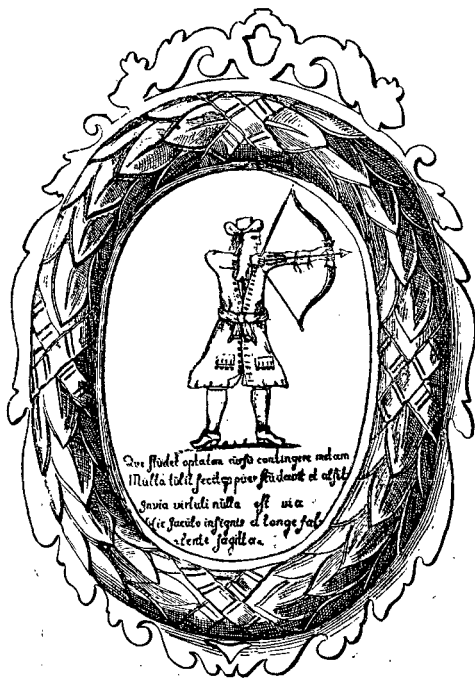 Qve studet optatam cursu contingere metam
Multa tulit fecitq puer studavit et alsit
Invia virtuti nulla est via
Jaculo insignis et longe fal
lente sagitta.